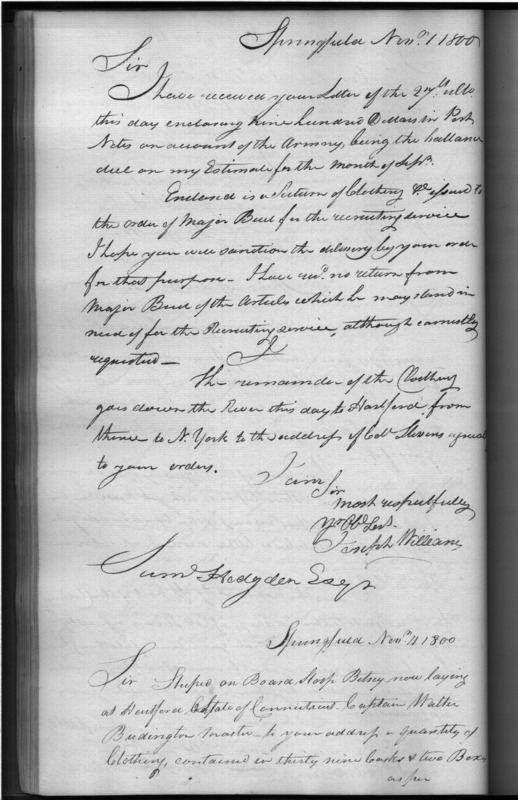 Springfield Novr. 1 1800
Sir
I have received your Letter of the 27th. ulto.
this day enclosing Nine hundred Dollars in Post
Notes on account of the Armory, being the ballance
due on my Estimate for the month of Sepr.
Enclosed is a Return of Clothing &c issued to
the order of Major Buel for the recruiting service
I hope you will sanction the delivery by your order
for that purpose - I have recd. no return from
Major Buel of the Articles which he may stand in
need of for the Recruiting service, although earnestly
requested -
The remainder of the Clothing
goes down the River this day to Hartford from
thence to N. York to the address of Eb. Stevens agreeable
to your orders.
I am
Sir
most respectfully
Yr Ob. Servt.
Joseph Williams
Saml. Hodgden Esqr
Springfield Novr. 4 1800
Sir Shiped on Board Sloop Betsey now laying
at Hartford State of Connecticut Captain Walter
Budington master to your address a quantity of
Clothing, contained in thirty nine Casks & two Boxes
as per